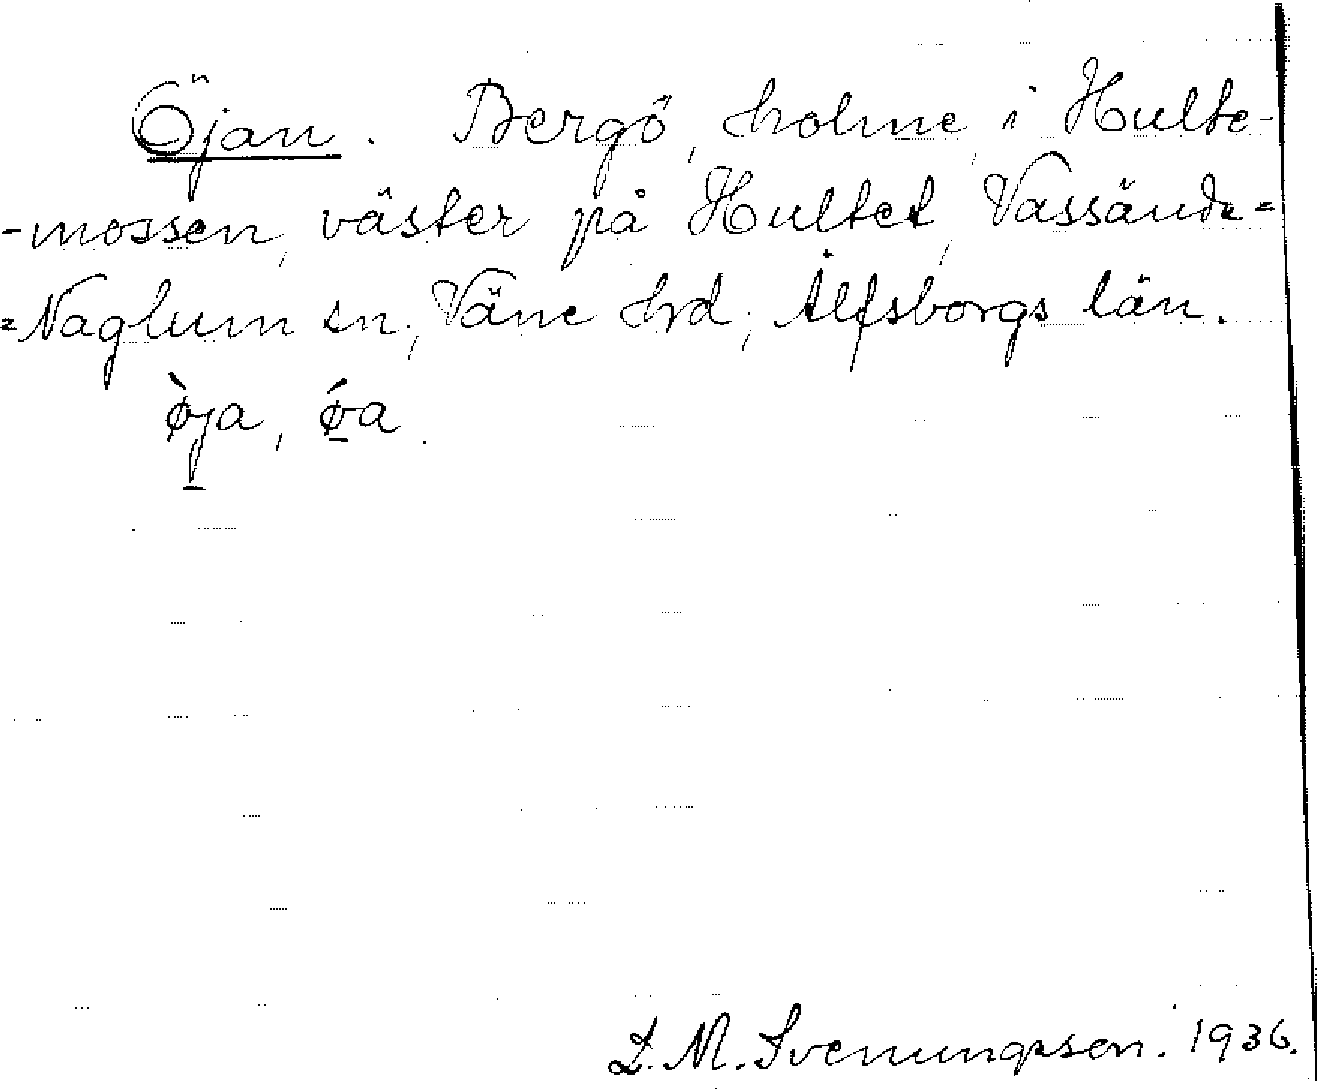 Öjan. Bergö, holme, i Hulte-
-mossen, väster på Hultet, Vassända-
=Naglum sn, Väne hrd, Älfsborgs län.
ø̀ja, ǿa.
L. M. Svenungsson. 1936.